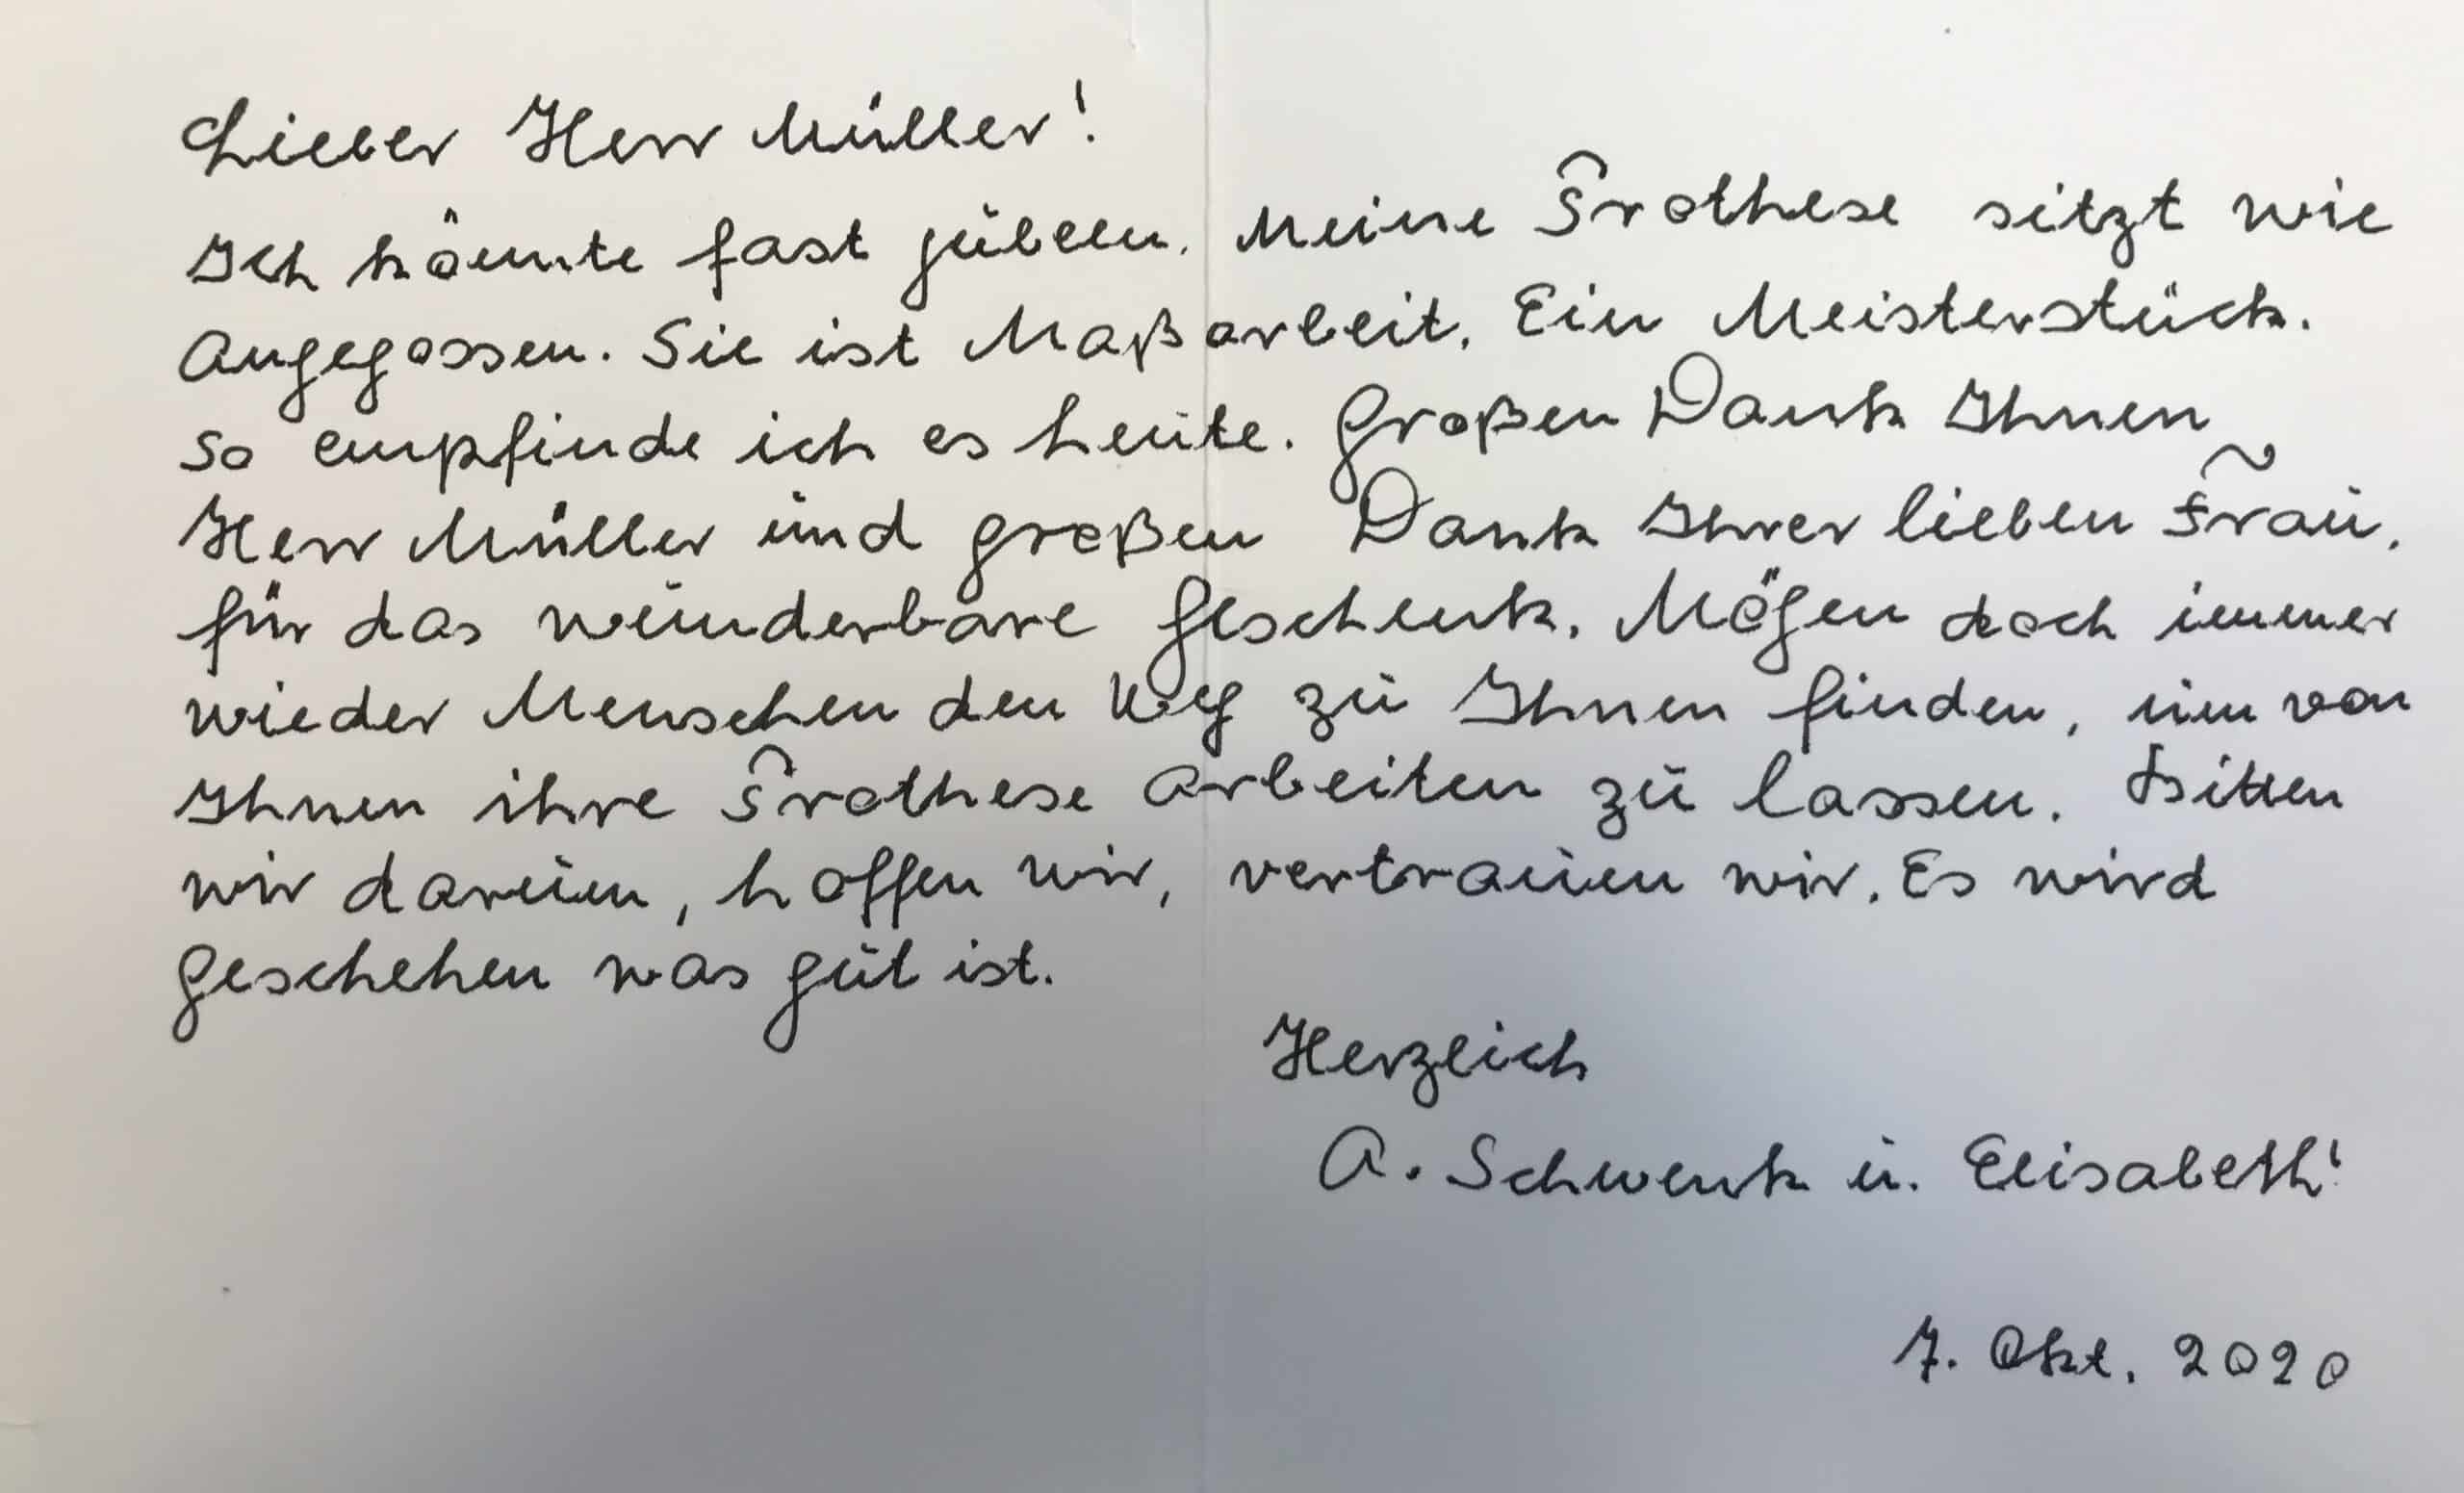 Lieber Herr Müller!
Ich könnte fast jubeln. Meine Prothese sitzt wie
Angegossen. Sie ist Maßarbeit. Ein Meisterstück.
So empfinde ich es heute. Großen Dank Ihnen
Herr Müller und großen Dank Ihrer lieben Frau,
für das wunderbare Geschenk. Mögen doch immer
wieder Menschen den Weg zu Ihnen finden, um von
Ihnen ihre Prothese arbeiten zu lassen. Bitten
wir darum, hoffen wir, vertrauen wir. Es wird
Geschehen was gut ist.
Herzlich
A. Schwenk u. Elisabeth!
7. Okt. 2020